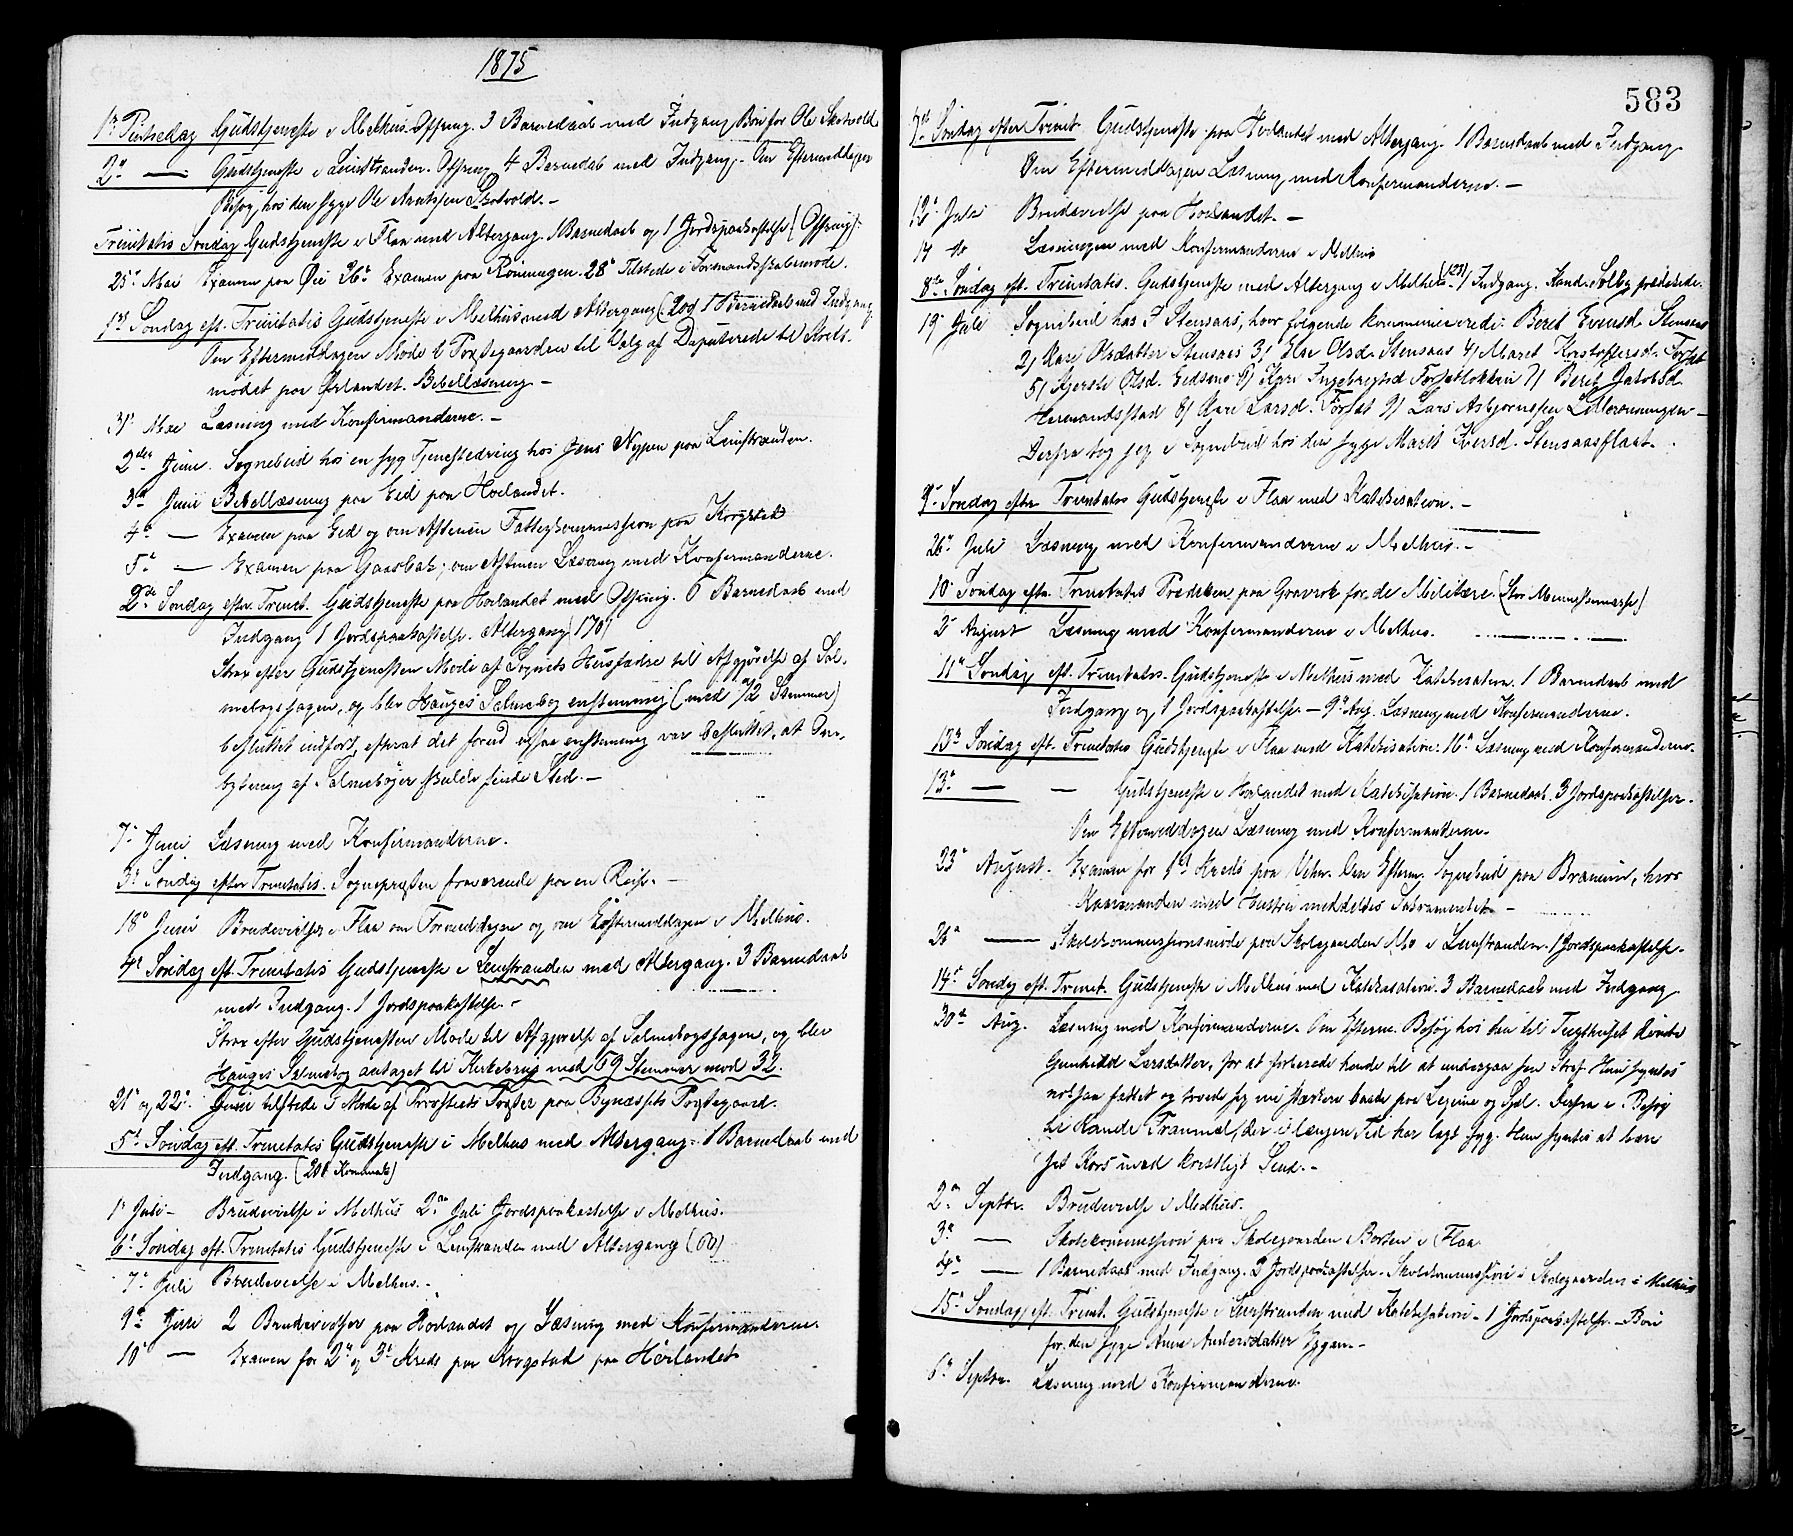 1875
1ste Pintsedag Gudstjeneste i Melhus. Offring. 3 Barnedaab med Indgang Bøn for Ole Skotvold
2n — Gudstjeneste i Leinstranden. Offring 4 Barnedaab med Indgang. Om Eftermiddagen
Besøg hos den syge Ole Arntssen Skotvold. —
Trinitatis Søndag Gudstjeneste i Flaa med Altergang. 1 Barnedaab og 1 Jordspaakastelse (Offring).
25n Mai Examen paa Øie 26n Examen paa Rømingen. 28n Tilstede i Formandskabsmøde.
1ste Søndag eft. Trinitatis Gudstjeneste i Melhus med Altergang 1 Barnedaab med Indgang.
Om Eftermiddagen Møde i Postegaarden til Valg af Deputerede til Kreds-
mødet paa Ørlandet. Bibellæsning —
31n Mai Læsning med Konfirmanderne. —
2den Juni. Sognebud hos en syg Tjenestedreng hos Jens Nypen paa Leinstranden.
3die Juni Bibellæsning paa Eid paa Hørlandet.
4n — Examen paa Eid og om Aftenen Fattigkommission paa Krogstad
5n — Examen paa Gaasbak; om Aftenen Læsning med Konfirmanderne.
2den Søndag efter Trinit. Gudstjeneste paa Hørlandet med Offring. 6 Barnedaab med
Indgang 1 Jordspaakastelse. Altergang (170)
Strax efter Gudstjenesten Møde af Sognets Husfædre til Afgjørelse af Sal-
mebogssagen, og blev Hauges Salmebog enstemmig (med 72 Stemmer)
besluttet indført, efterat det forud ogsaa enstemmig var besluttet, at Om-
bytning af Salmebøger skulde finde Sted. —
7n Juni Læsning med Konfirmanderne.
3die Søndag efter Trinitatis. Sognepræsten fraværende paa en Reise. —
18n Juni Brudevielse i Flaa om Formiddagen og om Eftermiddagen i Melhus.
4n Søndag eft. Trinitatis Gudstjeneste i Leinstranden med Altergang. 3 Barnedaab
med Indgang. 1 Jordspaakastelse. —
Strax efter Gudstjenesten Møde til Afgjørelse af Salmebogssagen, og blev
Hauges Salmebog antaget til Kirkebrug med 69 Stemmer mod 32.
21n og 22n. Juni tilstede i Møde af Provstiets Præster paa Bynæssets Præstegaard.
5n Søndag eft. Trinitatis Gudstjeneste i Melhus med Altergang. 1 Barnedaab med
Indgang.
1n Juli — Brudevielse i Melhus 2n Juli Jordspaakastelse i Melhus.
6n Søndag eft. Trinitatis Gudstjeneste i Leinstranden med Altergang (60)
7n Juli Brudevielse i Melhus. —
9n Juli 2 Brudevielser paa Hørlandet og Læsning med Konfirmanderne.
10n — Examen for 2n og 3n Kreds paa Krogstad paa Hørlandet
583
7de Søndag efter Trinit. Gudstjeneste paa Hørlandet med Altergang. 1 Barnedaab med Indgang.
Om Eftermiddagen Læsning med Konfirmanderne. —
12n Juli Brudevielse paa Hørlandet. —
14 do Læsningen med Konfirmanderne i Melhus
8de Søndag eft. Trinitatis. Gudstjeneste med Altergang i Melhus (123) 1 Indgang. Kand. Solby prædikede.
19n Juli Sognebud hos Stensaas, hvor følgende kommunicerede: Beret Evensd. Stensaas
2) Kari Olsdatter Stensaas 3) Else Olsd. Stensaas 4) Maret Kristoffersd. Forsæt
5) Kjersti Olsd. Eidsmo 6) Kari Ingebrigtsd. 7) Beret Jakobsd.
Hermandsstad 8) Kari Larsd. Forsæt 9) Lars Asbjørnssen Lilleronningen —
Derfra tog jeg i Sognebud hos den syge Marit Iversd. Stensaasflaat. —
9n Søndag efter Trinitatis Gudstjeneste i Flaa med Katekisation. —
26n Juli Læsning med Konfirmanderne i Melhus. —
10n Søndag efter Trinitatis Prædiken paa Gravrok for de Militære. (Stor Menneskemasse)
2n August Læsning med Konfirmanderne i Melhus.
11n Søndag eft. Trinitatis. Gudstjeneste i Melhus med Katekisation. 1 Barnedaab med
Indgang og 1 Jordspaakastelse — 9n Aug. Læsning med Konfirmanderne.
12n Søndag eft. Trinitatis Gudstjeneste i Flaa med Katekisation. 16n Læsning med Konfirmanderne.
13n — — Gudstjeneste i Hørlandet med Katekisation. 1 Barnedaab. 3 Jordspaakastelser.
Om Eftermiddagen Læsning med Konfirmanderne.
23n August. Examen for 1ste Kreds paa Den Efterm. Sognebud paa hvor
Kaarmanden med Hustru meddeltes Sakramentet. —
26n — Skolekommissionsmøde paa Skolegaarden Mo i Leinstranden. 1 Jordspaakastelse.
14n Søndag eft. Trinit. Gudstjeneste i Melhus med Katekisation. 3 Barnedaab med Indgang
30te Aug. Læsning med Konfirmanderne. Om Efterm. Besøg hos den til Tugthuset dømte
Gunhild Larsdatter, for at forberede hende til at undergaa sin Straf. Hun syntes
noksaa fattet og troede sig nu stærkere baade paa Legeme og Sjel. Derfra i Besøg
hos Kande Trammel, der i længere Tid har lagt syg. Hun syntes at bære
sit Kors med kristeligt Sind. —
2n Septbr. Brudevielse i Melhus.
3n — Skolekommission paa Skolegaarden Borten i Flaa
4n — 1 Barnedaab med Indgang. 2 Jordspaakastelse. Skolekommission i Skolegaarden i Melhus
15n Søndag eft. Trinit. Gudstjeneste i Leinstranden med Katekisation. 1 Jordspaakastelse. — Bøn
for den syge Anne Andersdatter Eggen. —
6n Septbr. Læsning med Konfirmanderne.